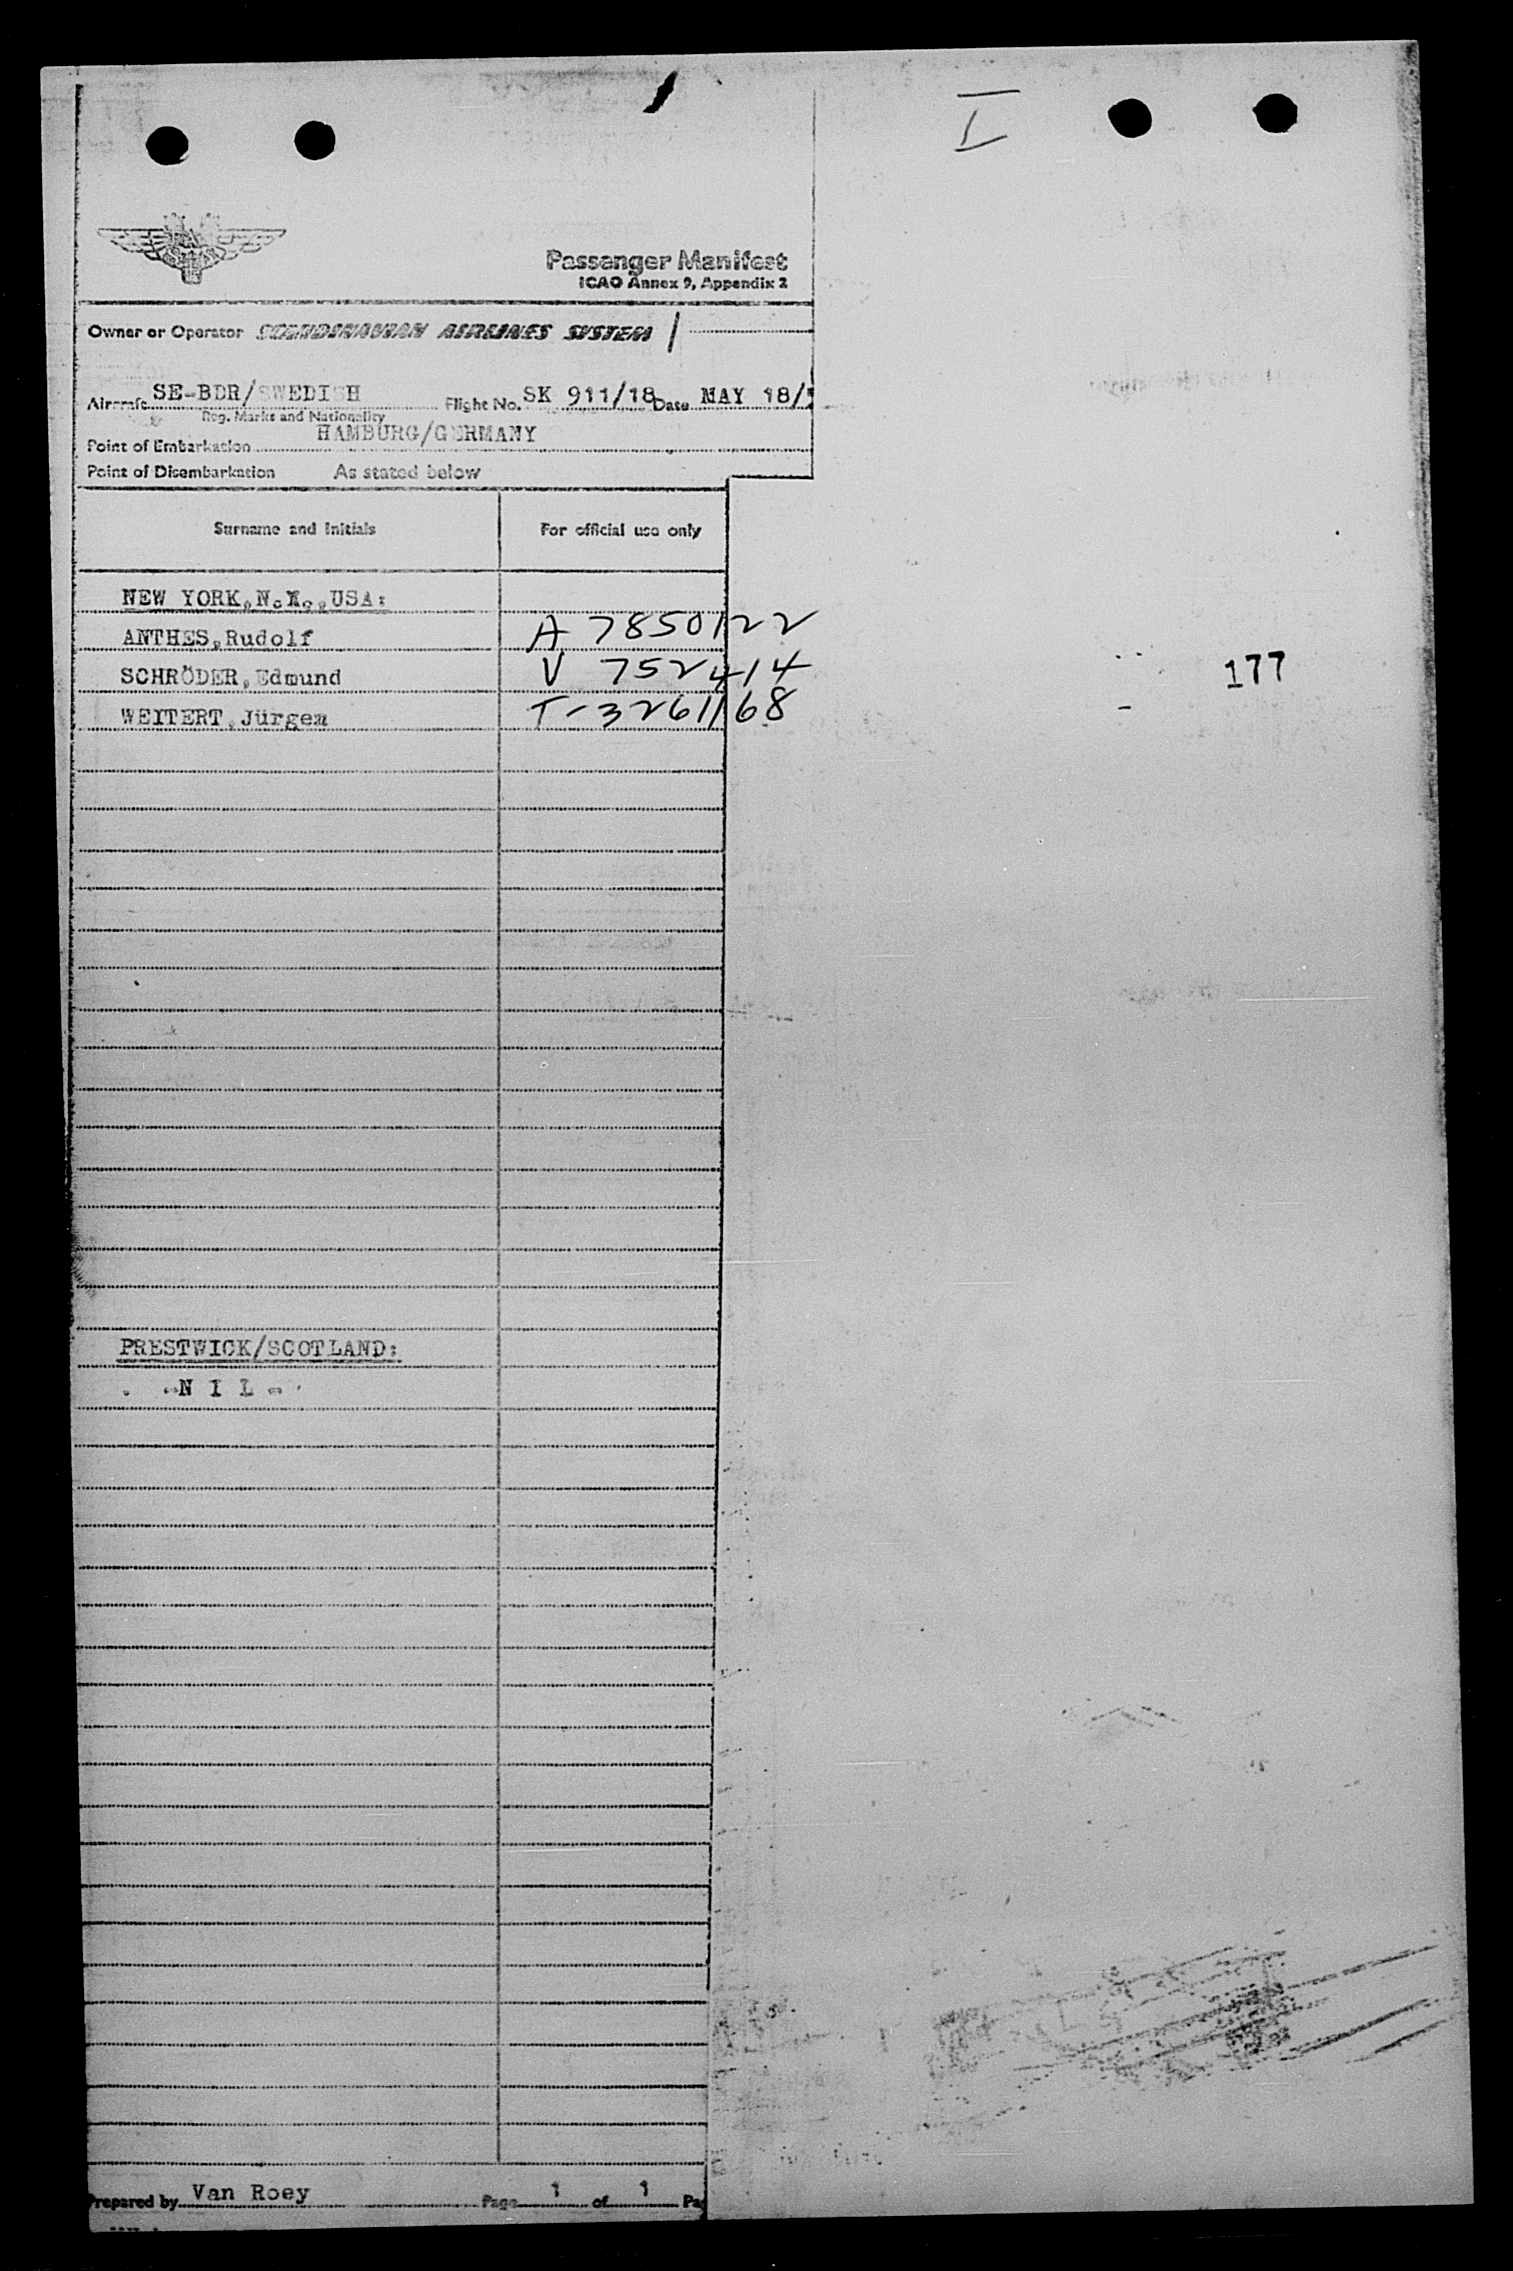 I
Passenger Manifest
ICAO Annex 9, Appendix 2
Owner or Operator SCANDINAVIAN AIRLINES SYSTEM
Aircraft SE-BDR/SWEDISH Flight No. SK 911/18 Date MAY 18/
Reg. Marks and Nationality
Point of Embarkation HAMBURG/GERMANY
Point of Disembarkation As stated below
Surname and Initials For official use only
NEW YORK,N.Y.,USA:
ANTHES,Rudolf A 7850122
SCHRÖDER,Edmund V 752414 177
WEITERT,Jürgen T-3261168
PRESTWICK/SCOTLAND:
-N I L-
Prepared by Van Roey Page 1 of 1